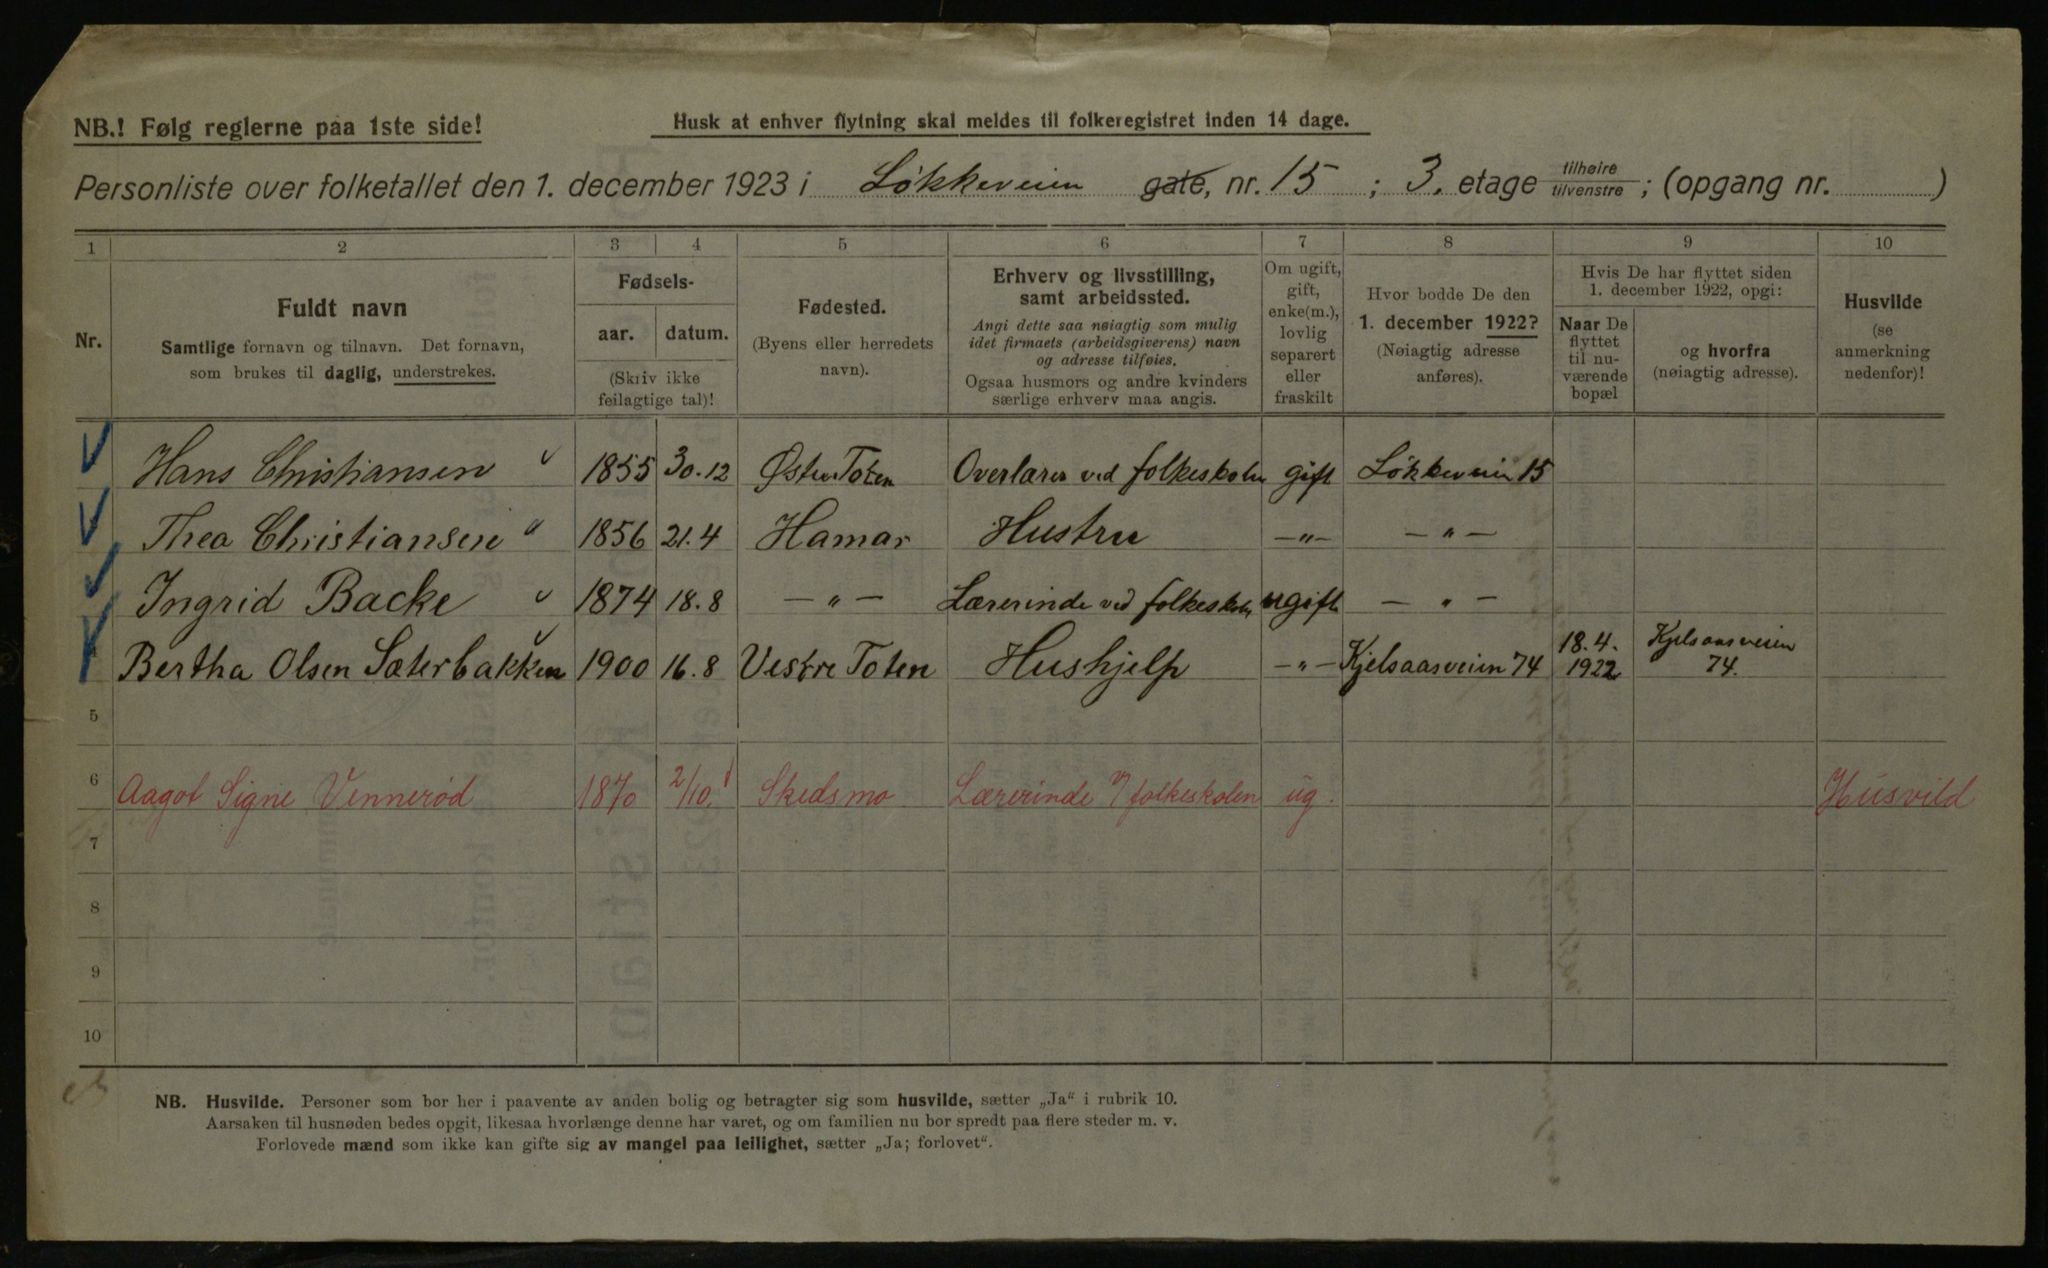 NB.! Følg reglerne paa 1ste side!
Husk at enhver flytning skal meldes til folkeregistret inden 14 dage.
Personliste over folketallet den 1. december 1923 i Løkkeveien gate, nr. 15 ; 3. etage tilhøire tilvenstre ; (opgang nr. )
1 2 3 4 5 6 7 8 9 10
Nr.
Fuldt navn
Samtlige fornavn og tilnavn. Det fornavn,
som brukes til daglig, understrekes.
Fødsels-
aar. datum.
(Skriv ikke
feilagtige tal)!
Fødested.
(Byens eller herredets
navn).
Erhverv og livsstilling,
samt arbeidssted.
Angi dette saa nøiagtig som mulig
idet firmaets (arbeidsgiverens) navn
og adresse tilføies.
Ogsaa husmors og andre kvinders
særlige erhverv maa angis.
Om ugift,
gift,
enke(m.),
lovlig
separert
eller
fraskilt
Hvor bodde De den
1. december 1922?
(Nøiagtig adresse
anføres).
Hvis De har flyttet siden
1. december 1922, opgi:
Naar De
flyttet
til nu-
værende
bopæl
og hvorfra
(nøiagtig adresse).
Husvilde
(se
anmerkning
nedenfor)!
Hans Christiansen 1855 30.12 Østre Toten Overlærer ved folkeskolen gift Løkkeveien 15
Thea Christiansen 1856 21.4 Hamar Hustru —"— — " —
Ingrid Backe 1874 18.8 — " — Lærerinde ved folkeskolen ugift — " —
Bertha Olsen Sæterbakken 1900 16.8 Vestre Toten Hushjelp —"— Kjelsaasveien 74 18.4. 1922 Kjelsaasveien 74.
5
6 Aagot Signe Vennerød 1870 2/10. Skedsmo Lærerinde v/ folkeskolen ug. Husvild
7
8
9
10
NB. Husvilde. Personer som bor her i paavente av anden bolig og betragter sig som husvilde, sætter „Ja" i rubrik 10.
Aarsaken til husnøden bedes opgit, likesaa hvorlænge denne har varet, og om familien nu bor spredt paa flere steder m. v.
Forlovede mænd som ikke kan gifte sig av mangel paa leilighet, sætter „Ja; forlovet".